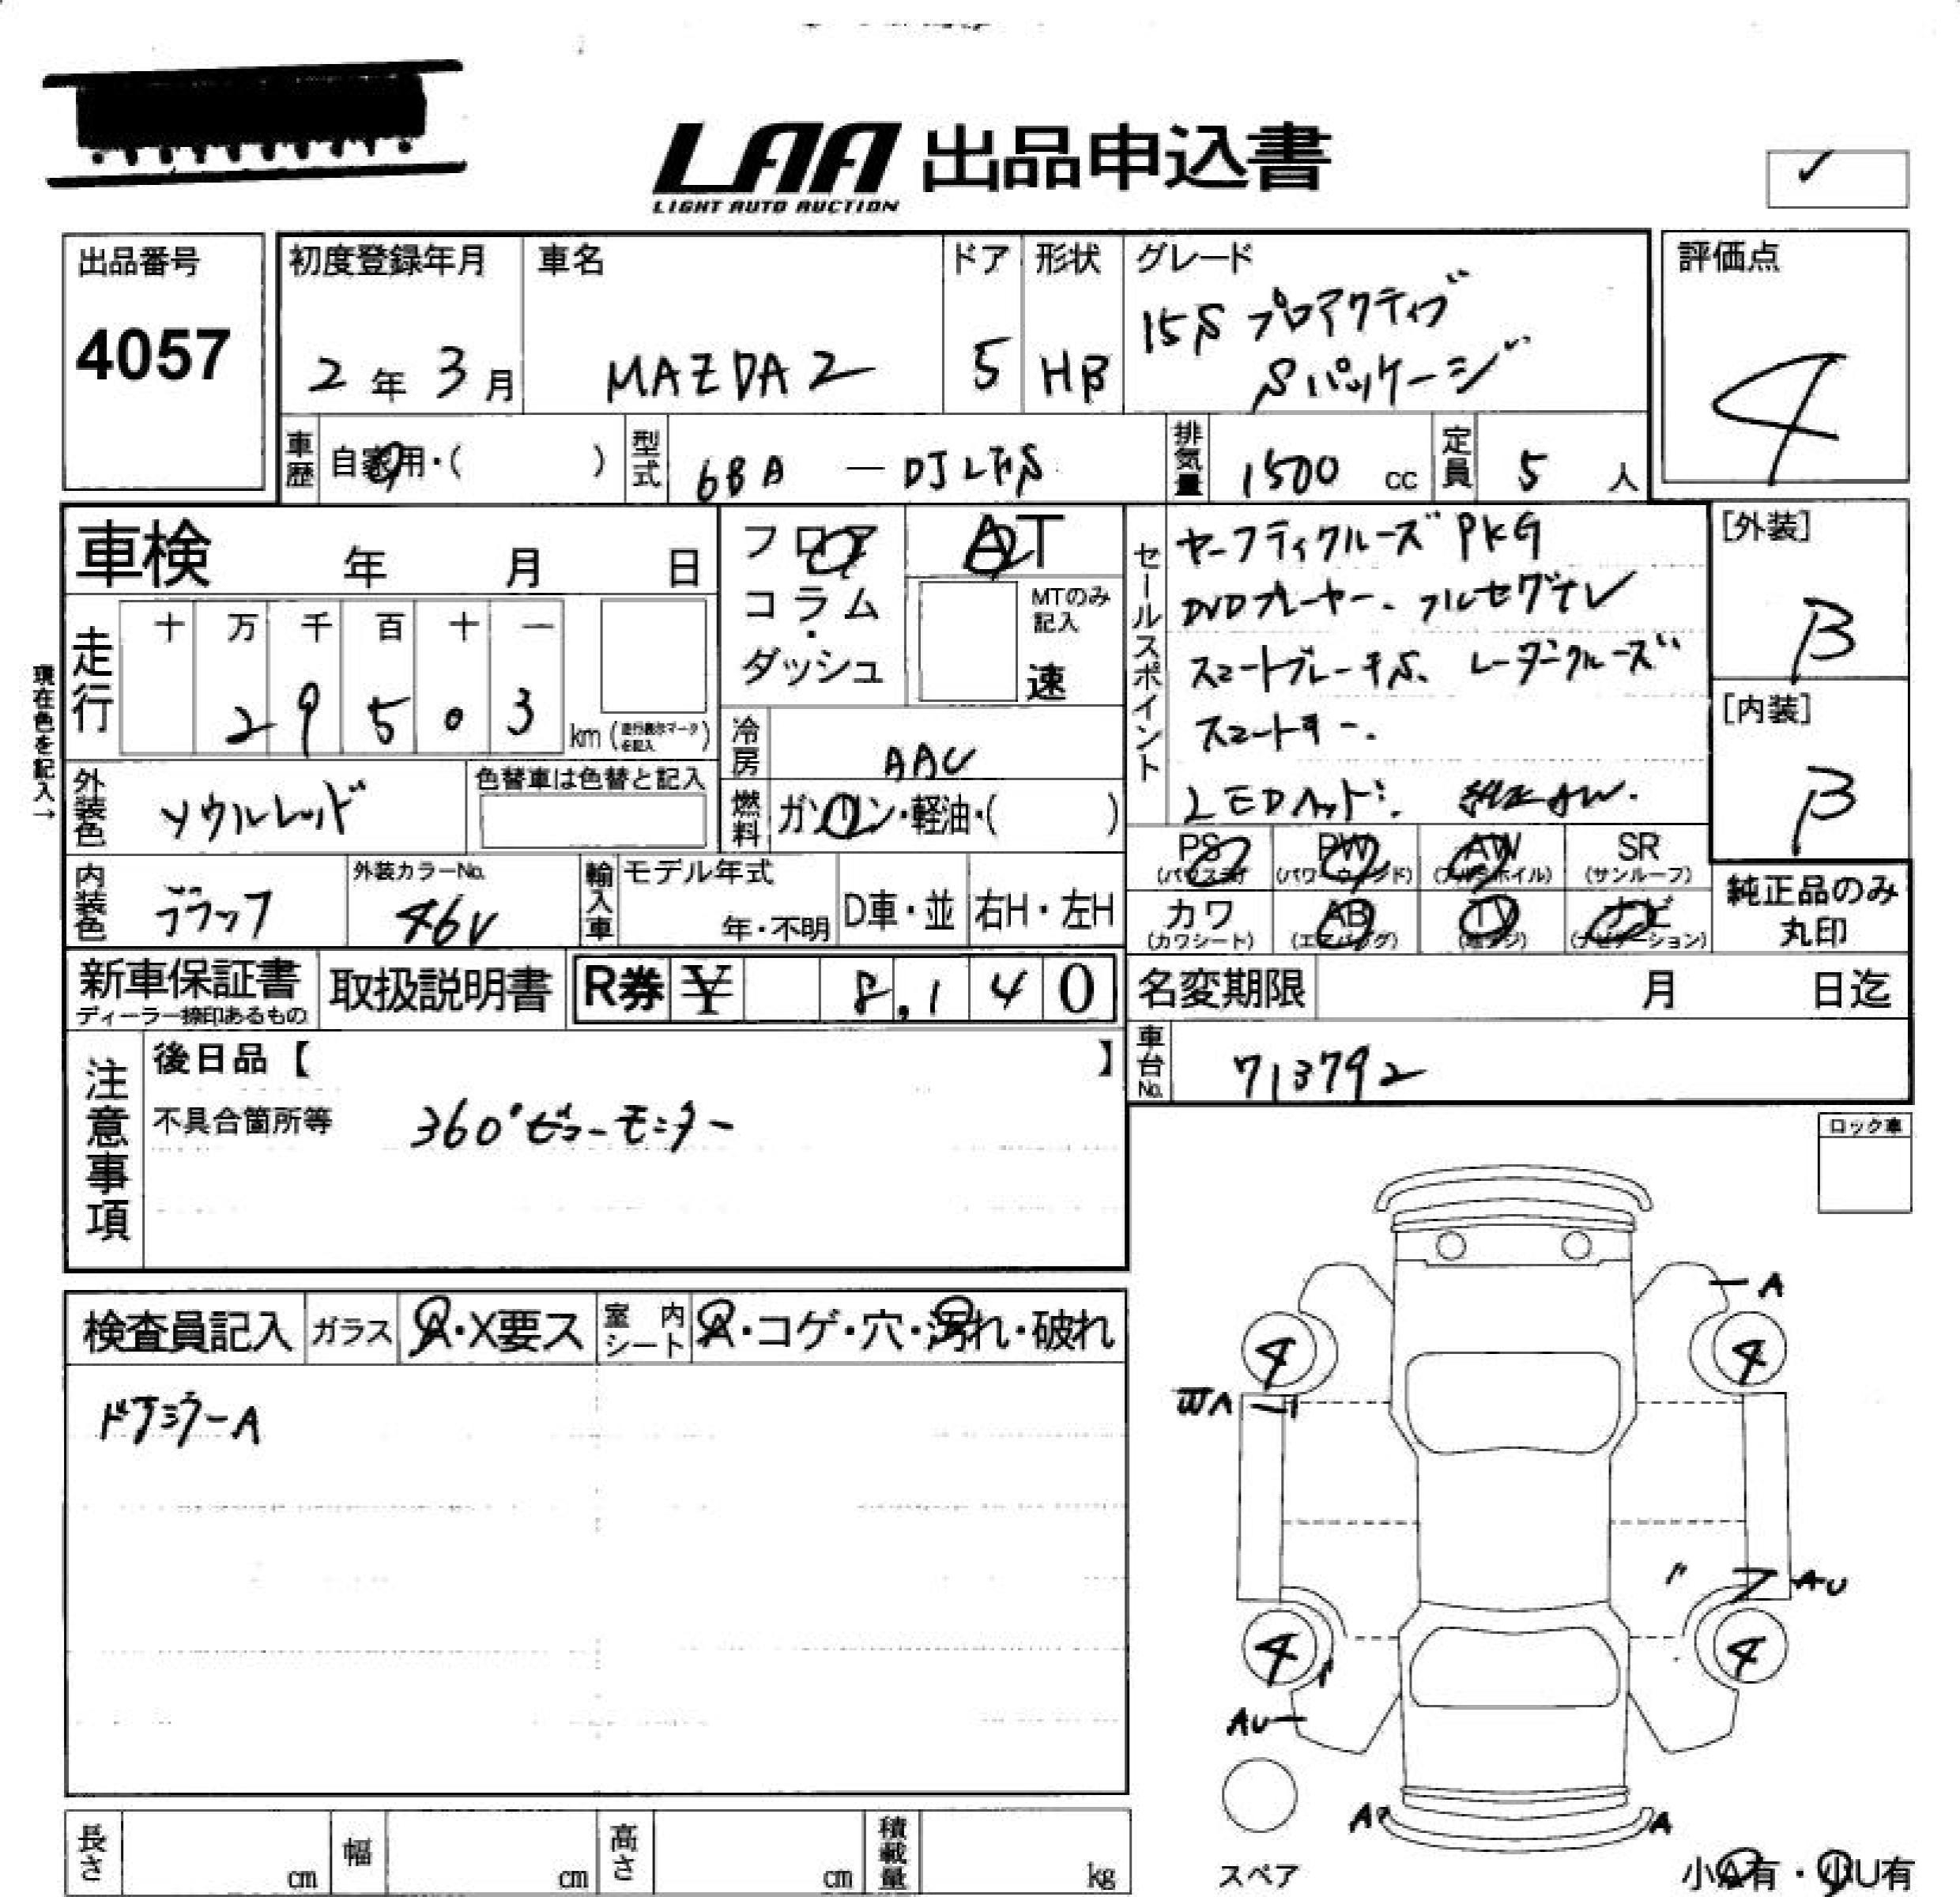 LAA 出品申込書
LIGHT AUTO AUCTION
出品番号
4057
初度登録年月
2年 3月
車名
MAZDA2
ドア
5
形状
HB
グレード
15S プロアクティブ
Sパッケージ
評価点
4
車歴
自家用・( )
型式
6BA — DJLFS
排気量
1500 cc
定員
5 人
車検 年 月 日
フロア
コラム
・
ダッシュ
AT
MTのみ
記入
速
セールスポイント
セーフティクルーズPKG
DVDプレーヤー、フルセグTV
スマートブレーキS、レーダークルーズ
スマートキー、
LEDヘッド、純正AW.
[外装]
B
[内装]
B
現在色を記入→
走行
十 万 千 百 十 一
2 9 5 0 3
km (走行表示マークを記入)
冷房
AAC
燃料
ガソリン・軽油・( )
外装色
ソウルレッド
色替車は色替と記入
内装色
ブラック
外装カラーNo.
46V
輸入車
モデル年式
年・不明
D車・並
右H・左H
PS
(パワステ)
PW
(パワーウインド)
AW
(アルミホイル)
SR
(サンルーフ)
カワ
(カワシート)
AB
(エアバッグ)
TV
ナビ
(ナビゲーション)
純正品のみ
丸印
新車保証書
ディーラー捺印あるもの
取扱説明書
R券 ¥ 8,140
名変期限 月 日迄
車台No.
713792
注意事項
後日品【 】
不具合箇所等
360°ビューモニター
ロック車
検査員記入
ガラス
A・X要ス
室内シート
A・コゲ・穴・汚れ・破れ
ドアミラーA
A
4 4
AU
4 4
AU
A A
スペア
小A有・小U有
長さ cm
幅 cm
高さ cm
積載量 kg